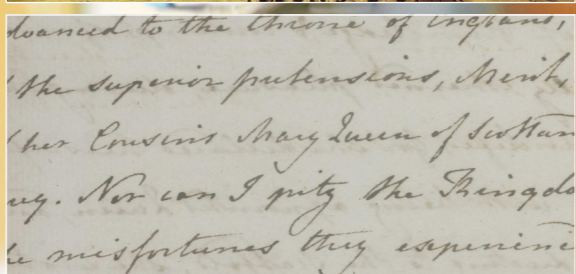 dvanced to the throne of England,
the superior pretensions, Merit,
her Cousins Mary Queen of Scotlan
ey. Nor can I pity the Kingdo
e misfortunes they experienc